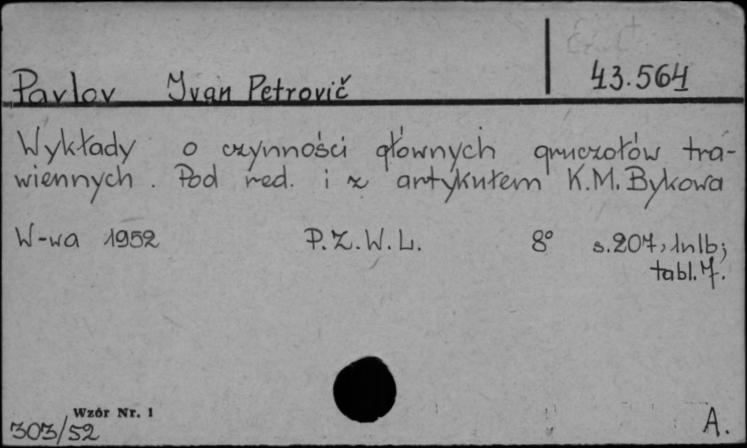 43.564
Pavlov Ivan Petrovič
Wykłady o czynności głównych gruczołów tra-
wiennych. Pod red. i z artykułem K.M. Bykowa
W-wa 1952 P.Z.W.L. 8° s.207, 1nlb;
tabl.7.
Wzór Nr. 1
303/52 A.